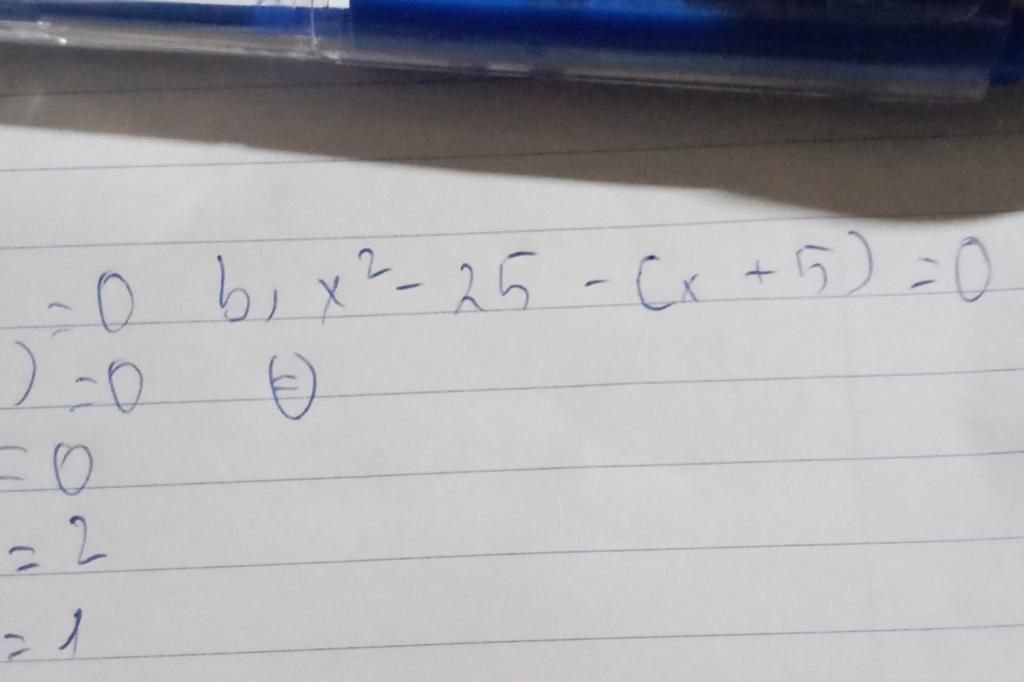 =0 b, x² - 25 - (x + 5) = 0
) =0 ⇔
= 0
= 2
= 1